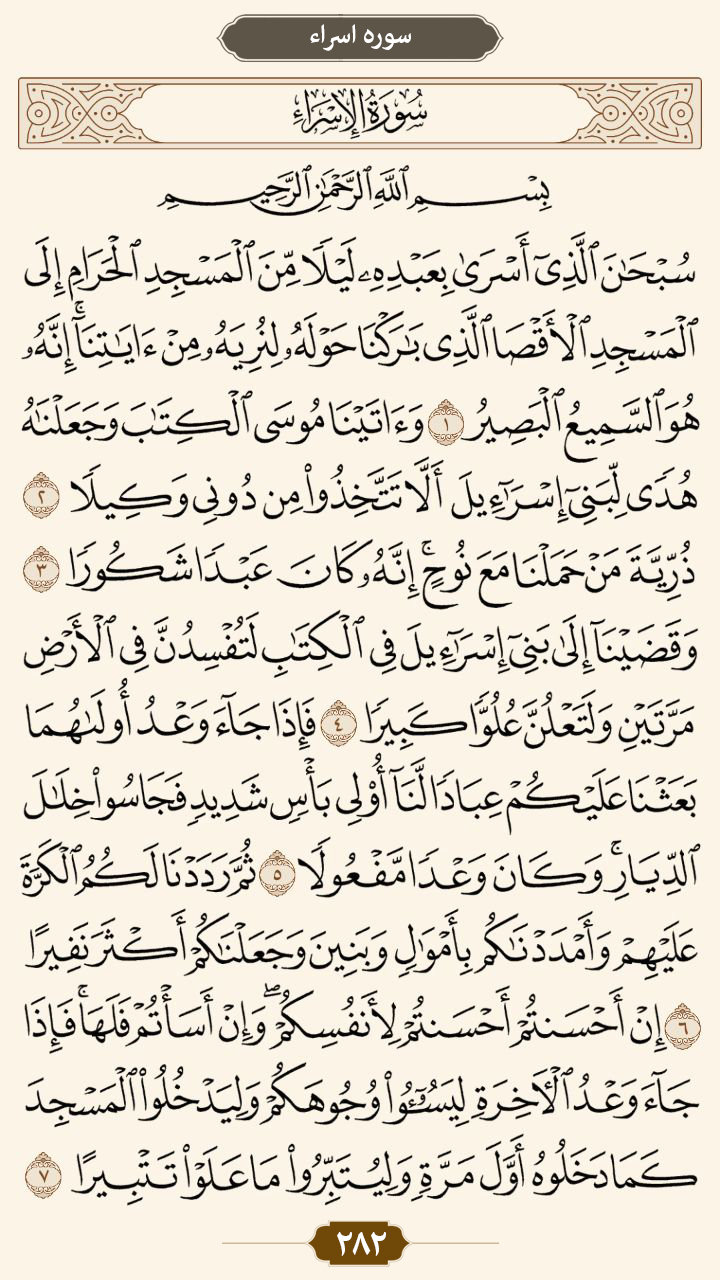 سوره اسراء
سُورَةُ الإِسْرَاءِ
بِسْمِ ٱللَّهِ ٱلرَّحْمَٰنِ ٱلرَّحِيمِ
سُبْحَٰنَ ٱلَّذِىٓ أَسْرَىٰ بِعَبْدِهِۦ لَيْلًا مِّنَ ٱلْمَسْجِدِ ٱلْحَرَامِ إِلَى
ٱلْمَسْجِدِ ٱلْأَقْصَا ٱلَّذِى بَٰرَكْنَا حَوْلَهُۥ لِنُرِيَهُۥ مِنْ ءَايَٰتِنَآ ۚ إِنَّهُۥ
هُوَ ٱلسَّمِيعُ ٱلْبَصِيرُ ١ وَءَاتَيْنَا مُوسَى ٱلْكِتَٰبَ وَجَعَلْنَٰهُ
هُدًى لِّبَنِىٓ إِسْرَٰٓءِيلَ أَلَّا تَتَّخِذُوا۟ مِن دُونِى وَكِيلًا ٢
ذُرِّيَّةَ مَنْ حَمَلْنَا مَعَ نُوحٍ ۚ إِنَّهُۥ كَانَ عَبْدًا شَكُورًا ٣
وَقَضَيْنَآ إِلَىٰ بَنِىٓ إِسْرَٰٓءِيلَ فِى ٱلْكِتَٰبِ لَتُفْسِدُنَّ فِى ٱلْأَرْضِ
مَرَّتَيْنِ وَلَتَعْلُنَّ عُلُوًّا كَبِيرًا ٤ فَإِذَا جَآءَ وَعْدُ أُولَىٰهُمَا
بَعَثْنَا عَلَيْكُمْ عِبَادًا لَّنَآ أُو۟لِى بَأْسٍ شَدِيدٍ فَجَاسُوا۟ خِلَٰلَ
ٱلدِّيَارِ ۚ وَكَانَ وَعْدًا مَّفْعُولًا ٥ ثُمَّ رَدَدْنَا لَكُمُ ٱلْكَرَّةَ
عَلَيْهِمْ وَأَمْدَدْنَٰكُم بِأَمْوَٰلٍ وَبَنِينَ وَجَعَلْنَٰكُمْ أَكْثَرَ نَفِيرًا
٦ إِنْ أَحْسَنتُمْ أَحْسَنتُمْ لِأَنفُسِكُمْ ۖ وَإِنْ أَسَأْتُمْ فَلَهَا ۚ فَإِذَا
جَآءَ وَعْدُ ٱلْـَٔاخِرَةِ لِيَسُۥٓـُٔوا۟ وُجُوهَكُمْ وَلِيَدْخُلُوا۟ ٱلْمَسْجِدَ
كَمَا دَخَلُوهُ أَوَّلَ مَرَّةٍ وَلِيُتَبِّرُوا۟ مَا عَلَوْا۟ تَتْبِيرًا ٧
٢٨٢